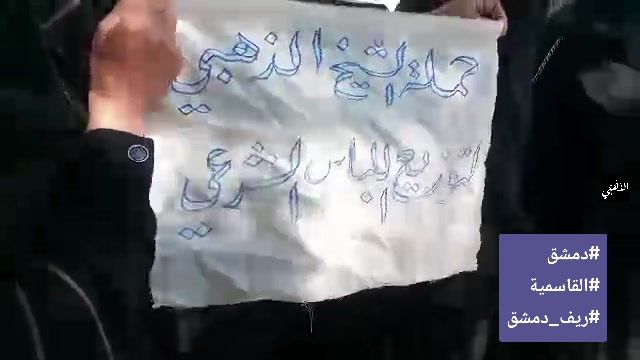 حملة الشيخ الذهبي
لتوزيع اللباس الشرعي
الذهبي
#دمشق
#القاسمية
#ريف_دمشق